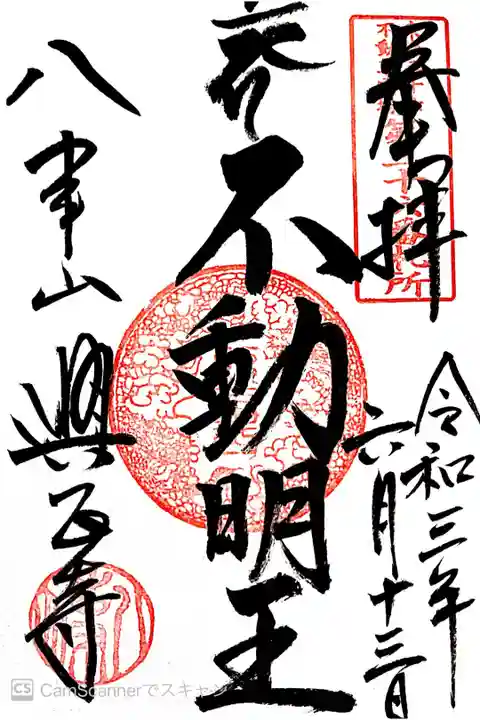 奉拝
令和三年
六月十三日
不動明王
八事山
興正寺
CS CamScannerでスキャン